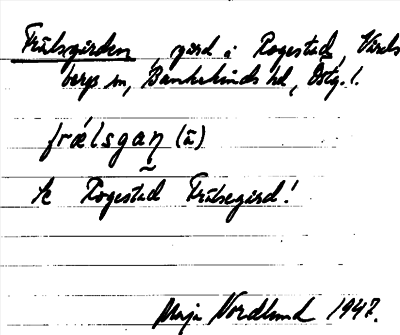 Frälsgården, gård i Rogestad, Viselbergs sn, Bankekinds hd, Östg. l.
frælsgaɳ (ä)
k Rogestad Frälsegård!
Maja Nordlund 1947.